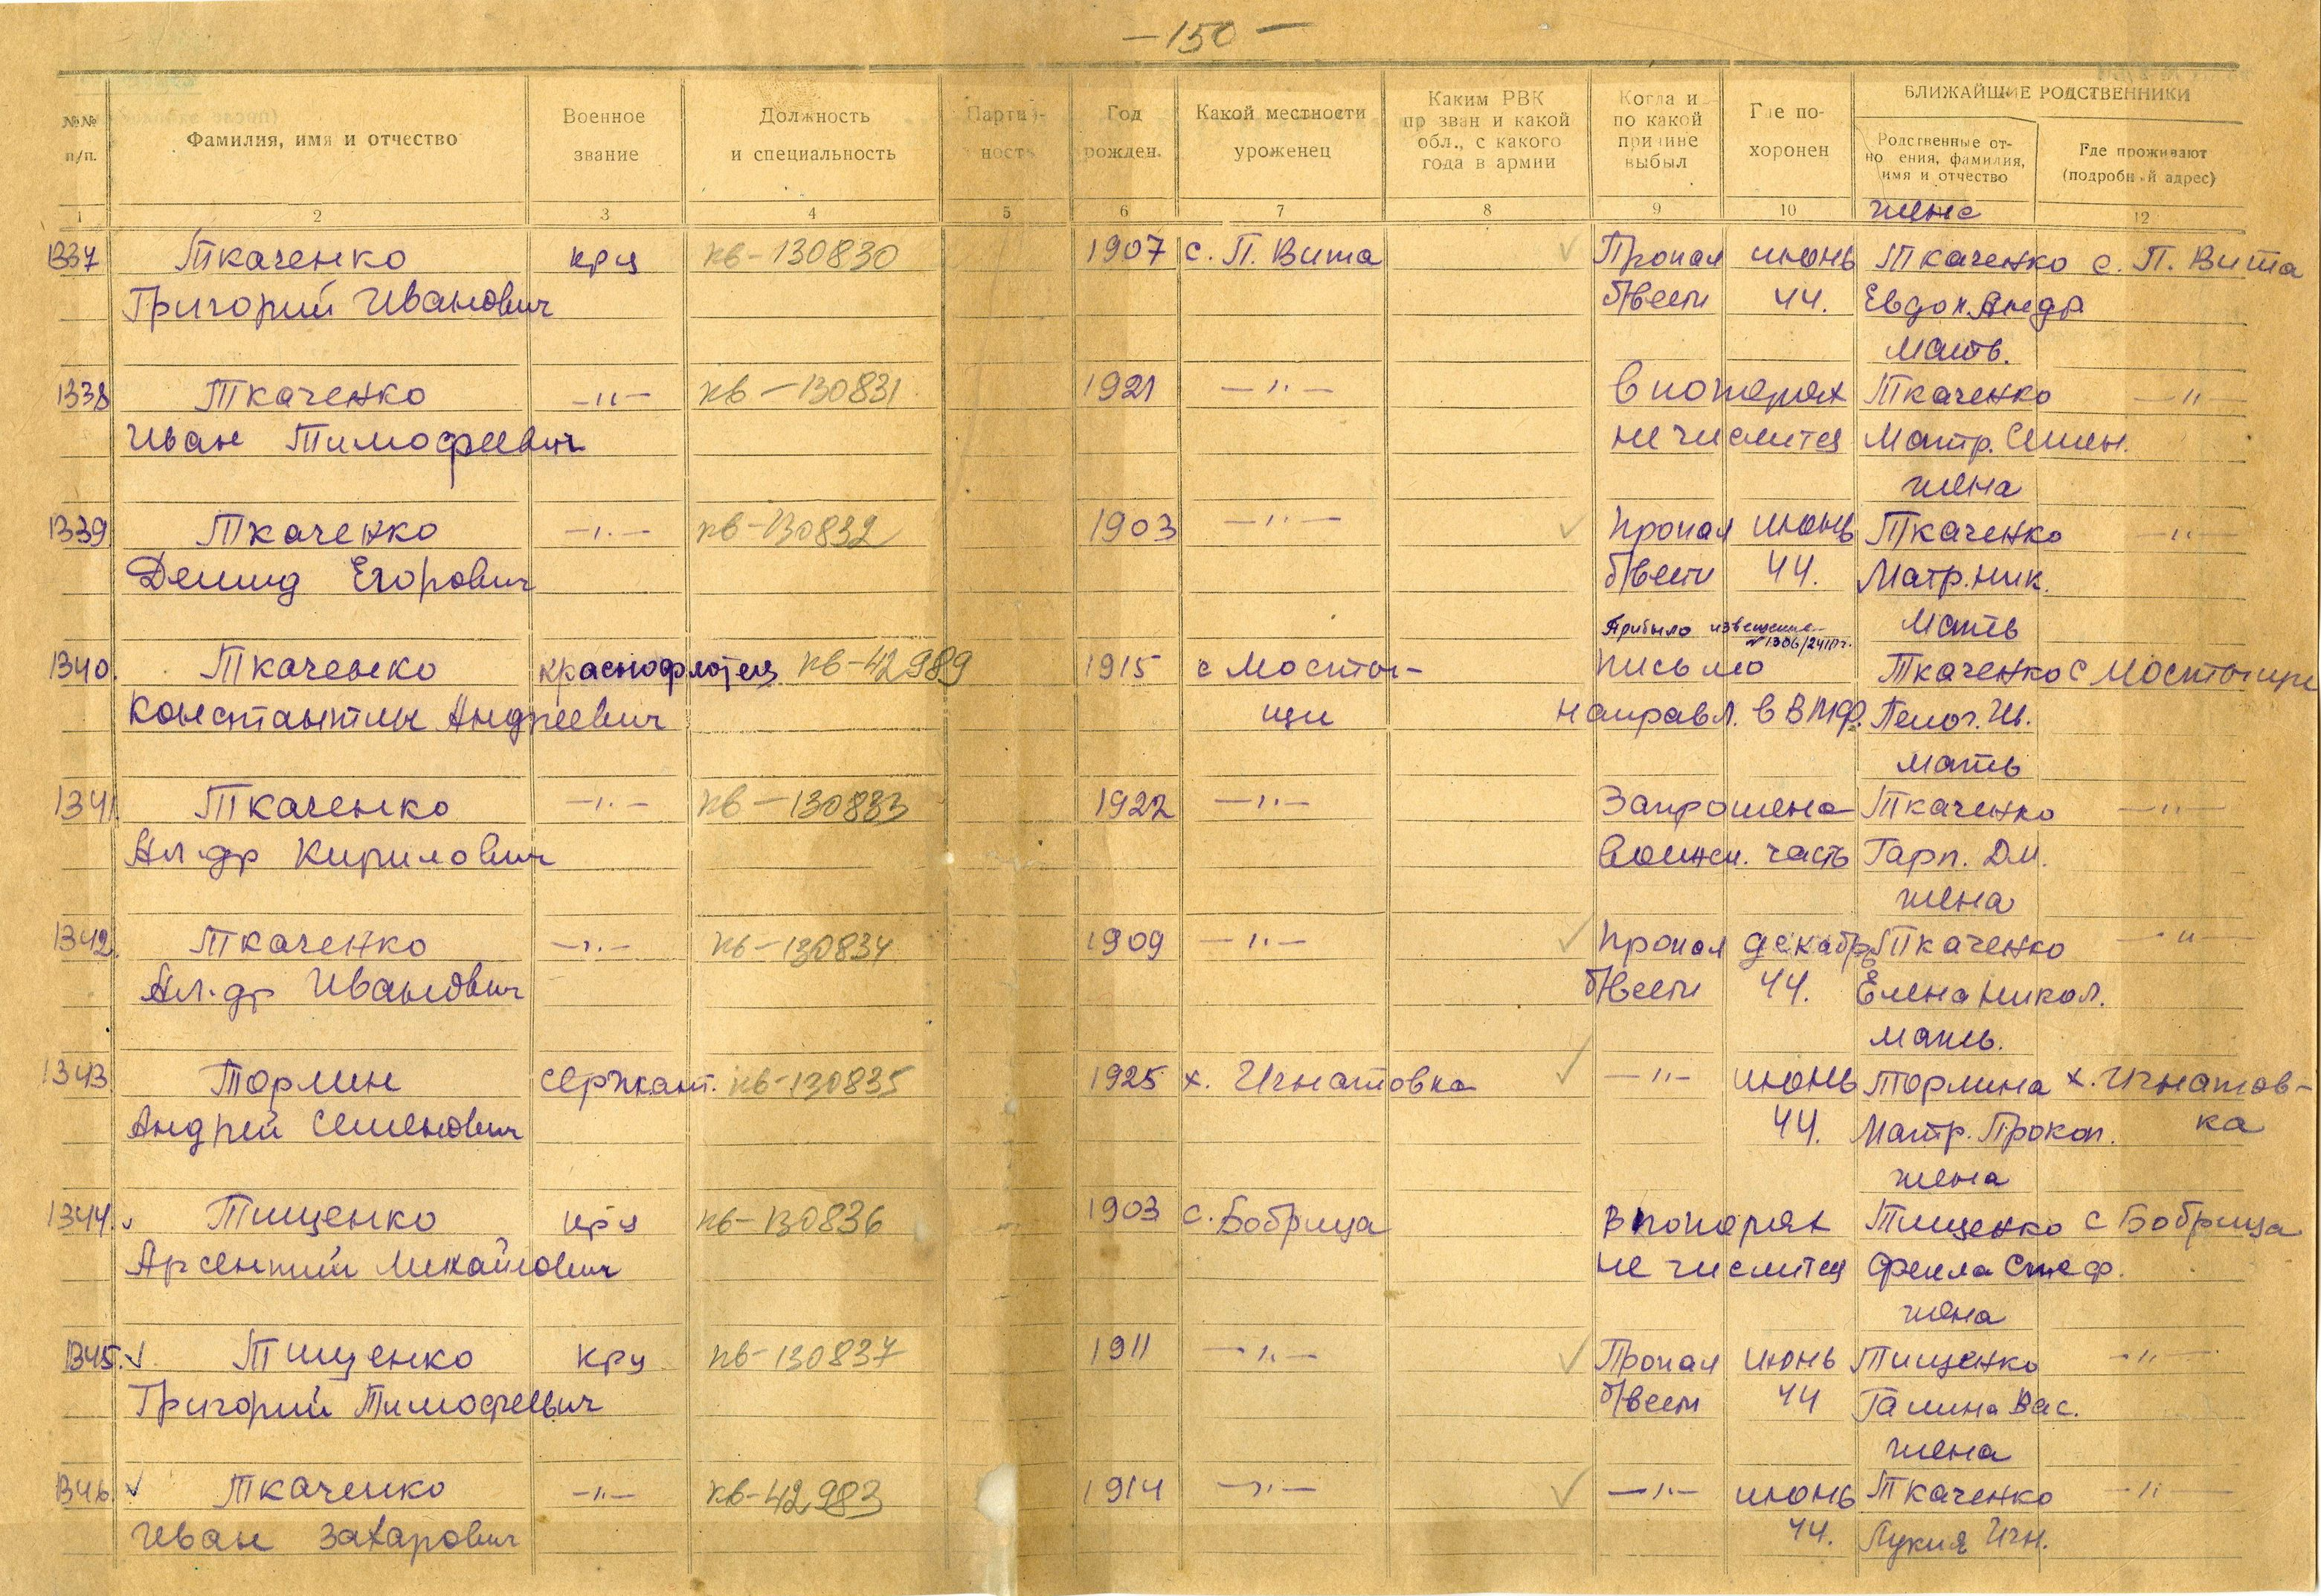 —150—
№№ п/п.
Фамилия, имя и отчество
Военное звание
Должность и специальность
Год рожден.
Какой местности уроженец
Каким РВК пр зван и какой обл., с какого года в армии
Когда и по какой причине выбыл
Где по-хоронен
БЛИЖАЙШИЕ РОДСТВЕННИКИ
имя и отчество
Где проживают (подробный адрес)
1 2 3 4 5 6 7 8 9 10 12
жена
1337 Ткаченко крц кв-130830 1907 с. П. Вита Пропал июнь Ткаченко с. П. Вита
Григорий Иванович б/вести 44. Евдок. Андр.
мать.
1338 Ткаченко —"— кв-130831 1921 —"— В потерях Ткаченко —"—
Иван Тимофеевич не числится Матр. Семен.
жена
1339 Ткаченко —"— кв-130832 1903 —"— пропал июнь Ткаченко —"—
Демид Егорович б/вести 44. Матр. Ник.
Прибыло извещение мать
1340. Ткаченко краснофлотец кв-42989 1915 с Мосты- письмо Ткаченко с Мостыще
Константин Андреевич щи направл. в ВМФ. Ив.
мать
1341. Ткаченко —"— кв-130833 1922 —"— Запрошена Ткаченко —"—
Ал-др Кирилович воинск. часть Гарп. Дм.
жена
1342. Ткаченко —"— кв-130834 1909 —"— пропал декабрь Ткаченко —"—
Ал-др Иванович б/вести 44. Елена Никол.
мать.
1343. Тормин сержант. кв-130835 1925 х. Игнатовка —"— июнь Тормина х. Игнатов-
Андрей Семенович 44. Матр. Прокоп. ка
жена
1344. Тищенко крц кв-130836 1903 с. Бобрица в потерях Тищенко с Бобрица
Арсентий Михайлович не числится Стеф.
жена
1345. Тищенко крц кв-130837 1911 —"— Пропал июнь Тищенко —"—
Григорий Тимофеевич б/вести 44 Галина Вас.
жена
1346. Ткаченко —"— кв-42983 1914 —"— —"— июнь Ткаченко —"—
Иван Захарович 44. Лукия Игн.